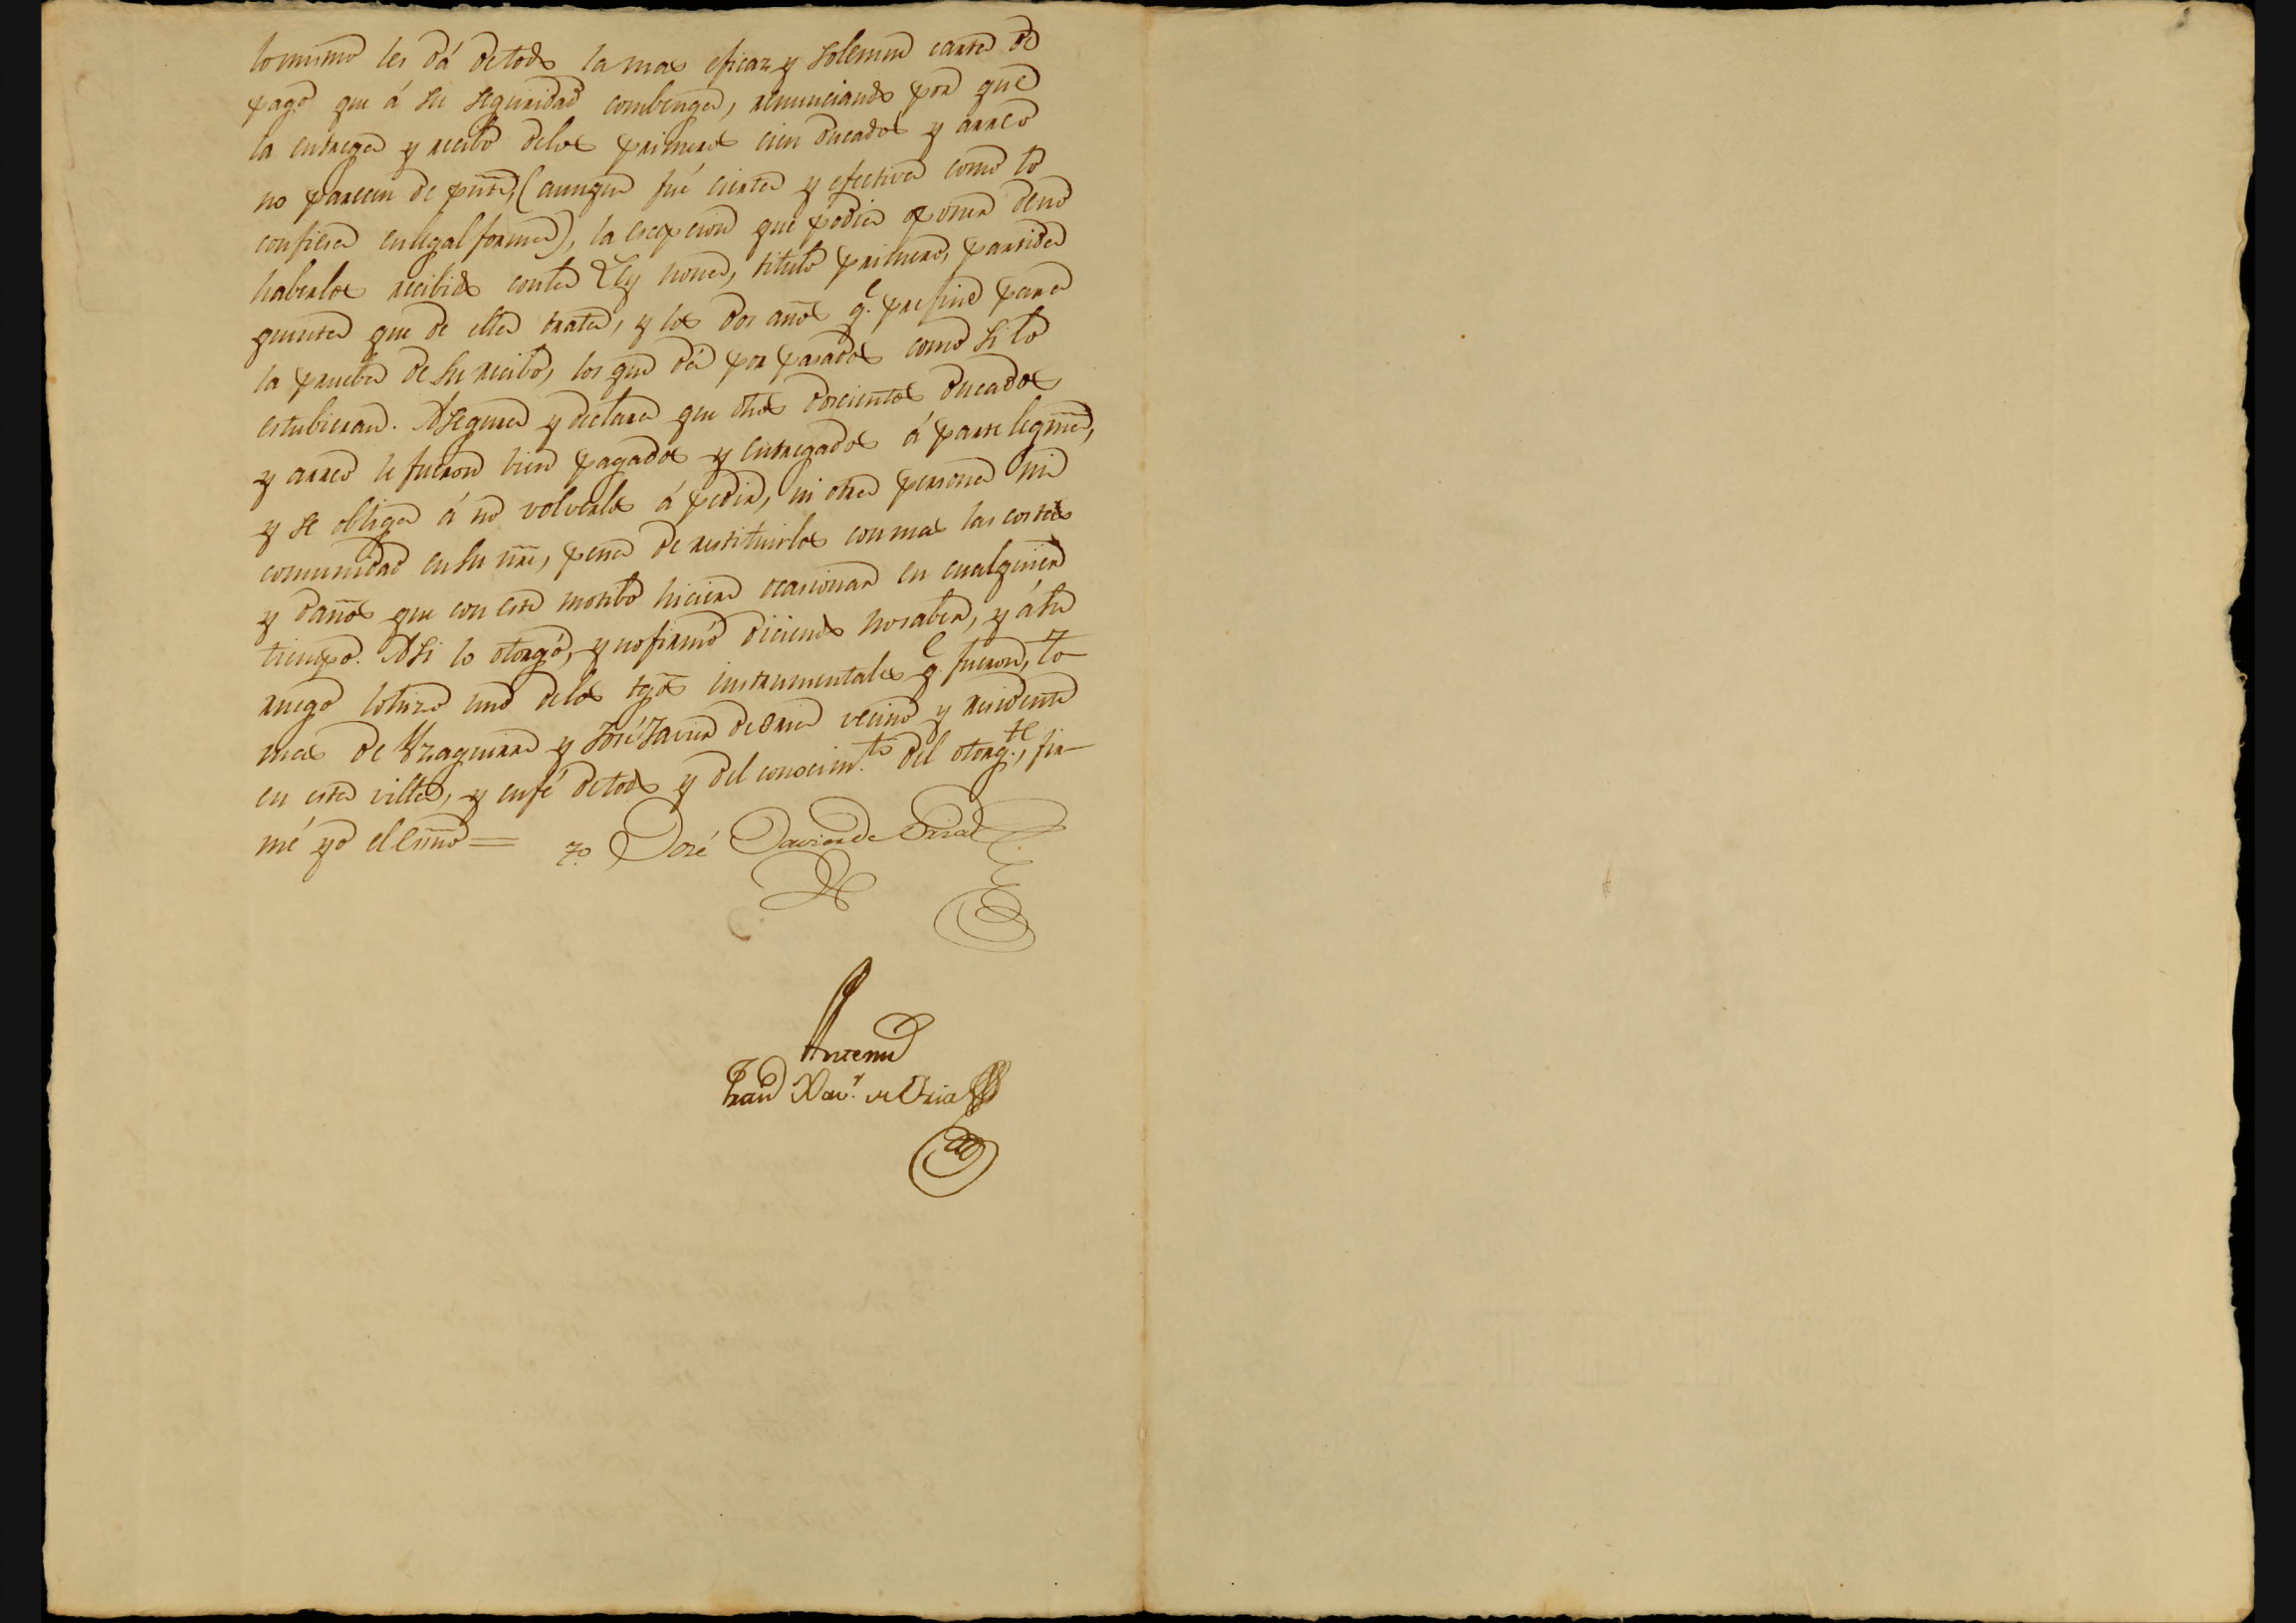 lo mismo les dá de todo la mas eficaz y solemne carta de
pago que á su seguridad combenga, renunciando por que
la entrega y recibo delos primeros cien ducados y arreo
no parecen de pnte, (aunque fué cierta y efectiva como lo
confiesa en legal forma), la escepcion que podia oponer de no
haberlos recibido con la Ley nona, titulo primero, partida
quinta que de ella trata, y los dos años q.e prefine para
la prueba de su recibo, los que dá por pasados como si lo
estubieran. Asegura y declara que dhos doscientos ducados
y arreo le fueron bien pagados y entregados á parte legma,
y se obliga á no volverlos á pedir, ni otra persona ni
comunidad en su nre, pena de restituirlos con mas las costas
y daños que con este motibo hiciere ocasionar en cualquier
tiempo. Asi lo otorgó, y no firmó diciendo no saber, y á su
ruego lo hizo uno delos tgos instrumentales q.e fueron, To-
mas de Yzaguirre y José Javier de Oria vecino y residente
en esta villa, y en fé de todo y del conocim.to del otorg.te, fir-
mé yo el Esno =
José Javier de Oria
Antemi
Fran Xav.r de Oria